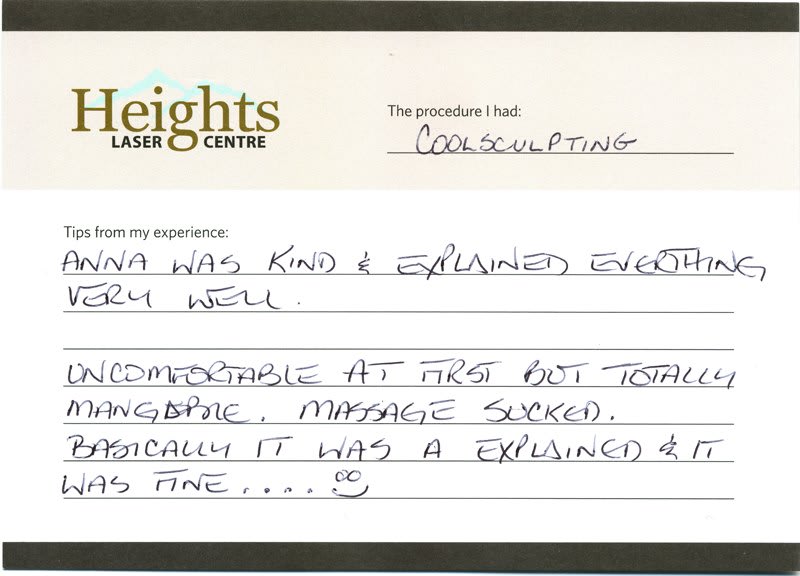 Heights
LASER CENTRE
The procedure I had:
COOLSCULPTING
Tips from my experience:
ANNA WAS KIND & EXPLAINED EVERTHING
VERY WELL.
UNCOMFORTABLE AT FIRST BUT TOTALLY
MANGABLE. MASSAGE SUCKED.
BASICALLY IT WAS A EXPLAINED & IT
WAS FINE....